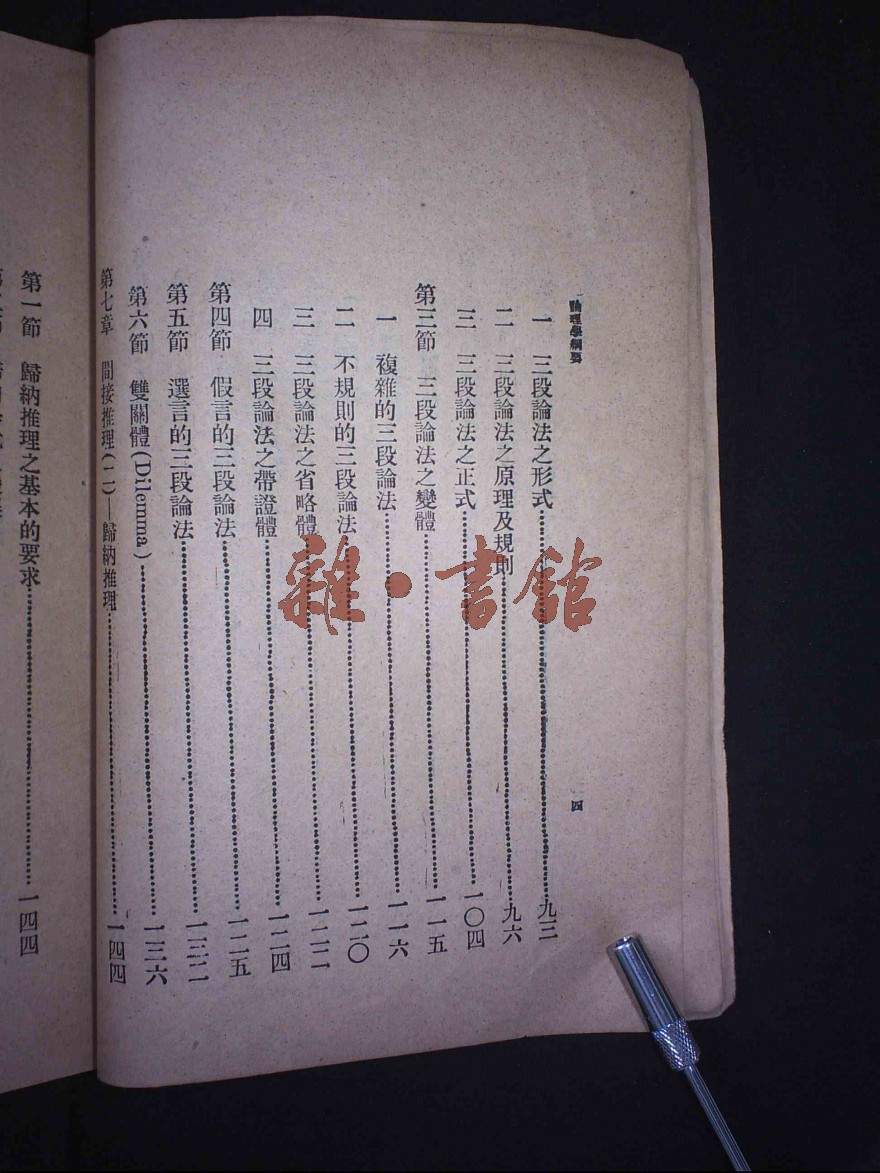 論理學綱要
四
一 三段論法之形式……九三
二 三段論法之原理及規則……九六
三 三段論法之正式……一〇四
第三節 三段論法之變體……一一五
一 複雜的三段論法……一一六
二 不規則的三段論法……一二〇
三 三段論法之省略體……一二二
四 三段論法之帶證體……一二四
第四節 假言的三段論法……一二五
第五節 選言的三段論法……一三二
第六節 雙關體(Dilemma)……一三六
第七章 間接推理(二)—歸納推理……一四四
第一節 歸納推理之基本的要求……一四四
雜·書館